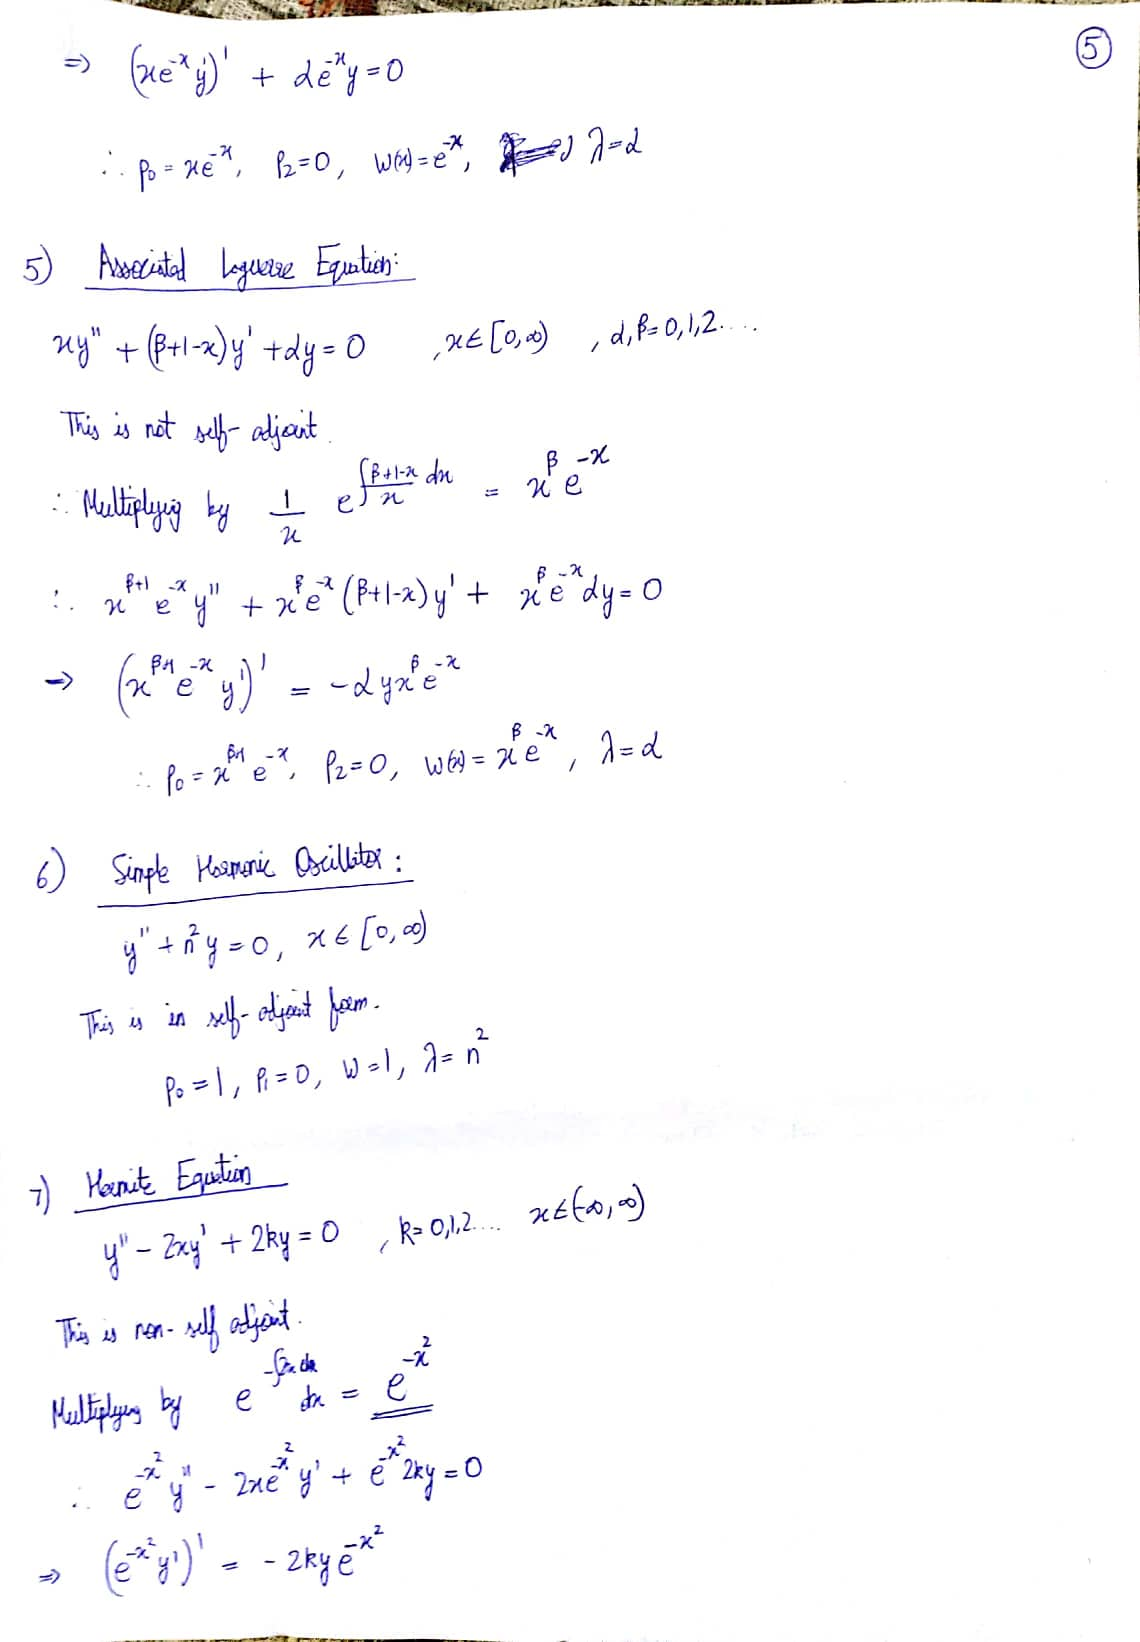 5
⇒ (xe⁻ˣy')' + αe⁻ˣy = 0
∴ p₀ = xe⁻ˣ, p₂ = 0, w(x) = e⁻ˣ, λ = α
5) Associated Laguerre Equation:
xy'' + (β+1-x)y' + αy = 0 , x ∈ [0,∞) , α,β = 0,1,2....
This is not self-adjoint.
∴ Multiplying by 1/x e^(∫(β+1-x)/x dx) = x^β e^(-x)
∴ x^(β+1) e^(-x) y'' + x^β e^(-x) (β+1-x)y' + x^β e^(-x) αy = 0
→ (x^(β+1) e^(-x) y')' = -αy x^β e^(-x)
∴ p₀ = x^(β+1) e^(-x), p₂ = 0, w(x) = x^β e^(-x), λ = α
6) Simple Harmonic Oscillator :
y'' + n²y = 0, x ∈ [0,∞)
This is in self-adjoint form.
p₀ = 1, p₁ = 0, w = 1, λ = n²
7) Hermite Equation
y'' - 2xy' + 2ky = 0 , k = 0,1,2.... x ∈ (-∞,∞)
This is non-self adjoint.
Multiplying by e^(-∫2x dx) dx = e^(-x²)
∴ e^(-x²) y'' - 2xe^(-x²) y' + e^(-x²) 2ky = 0
⇒ (e^(-x²) y')' = -2ky e^(-x²)